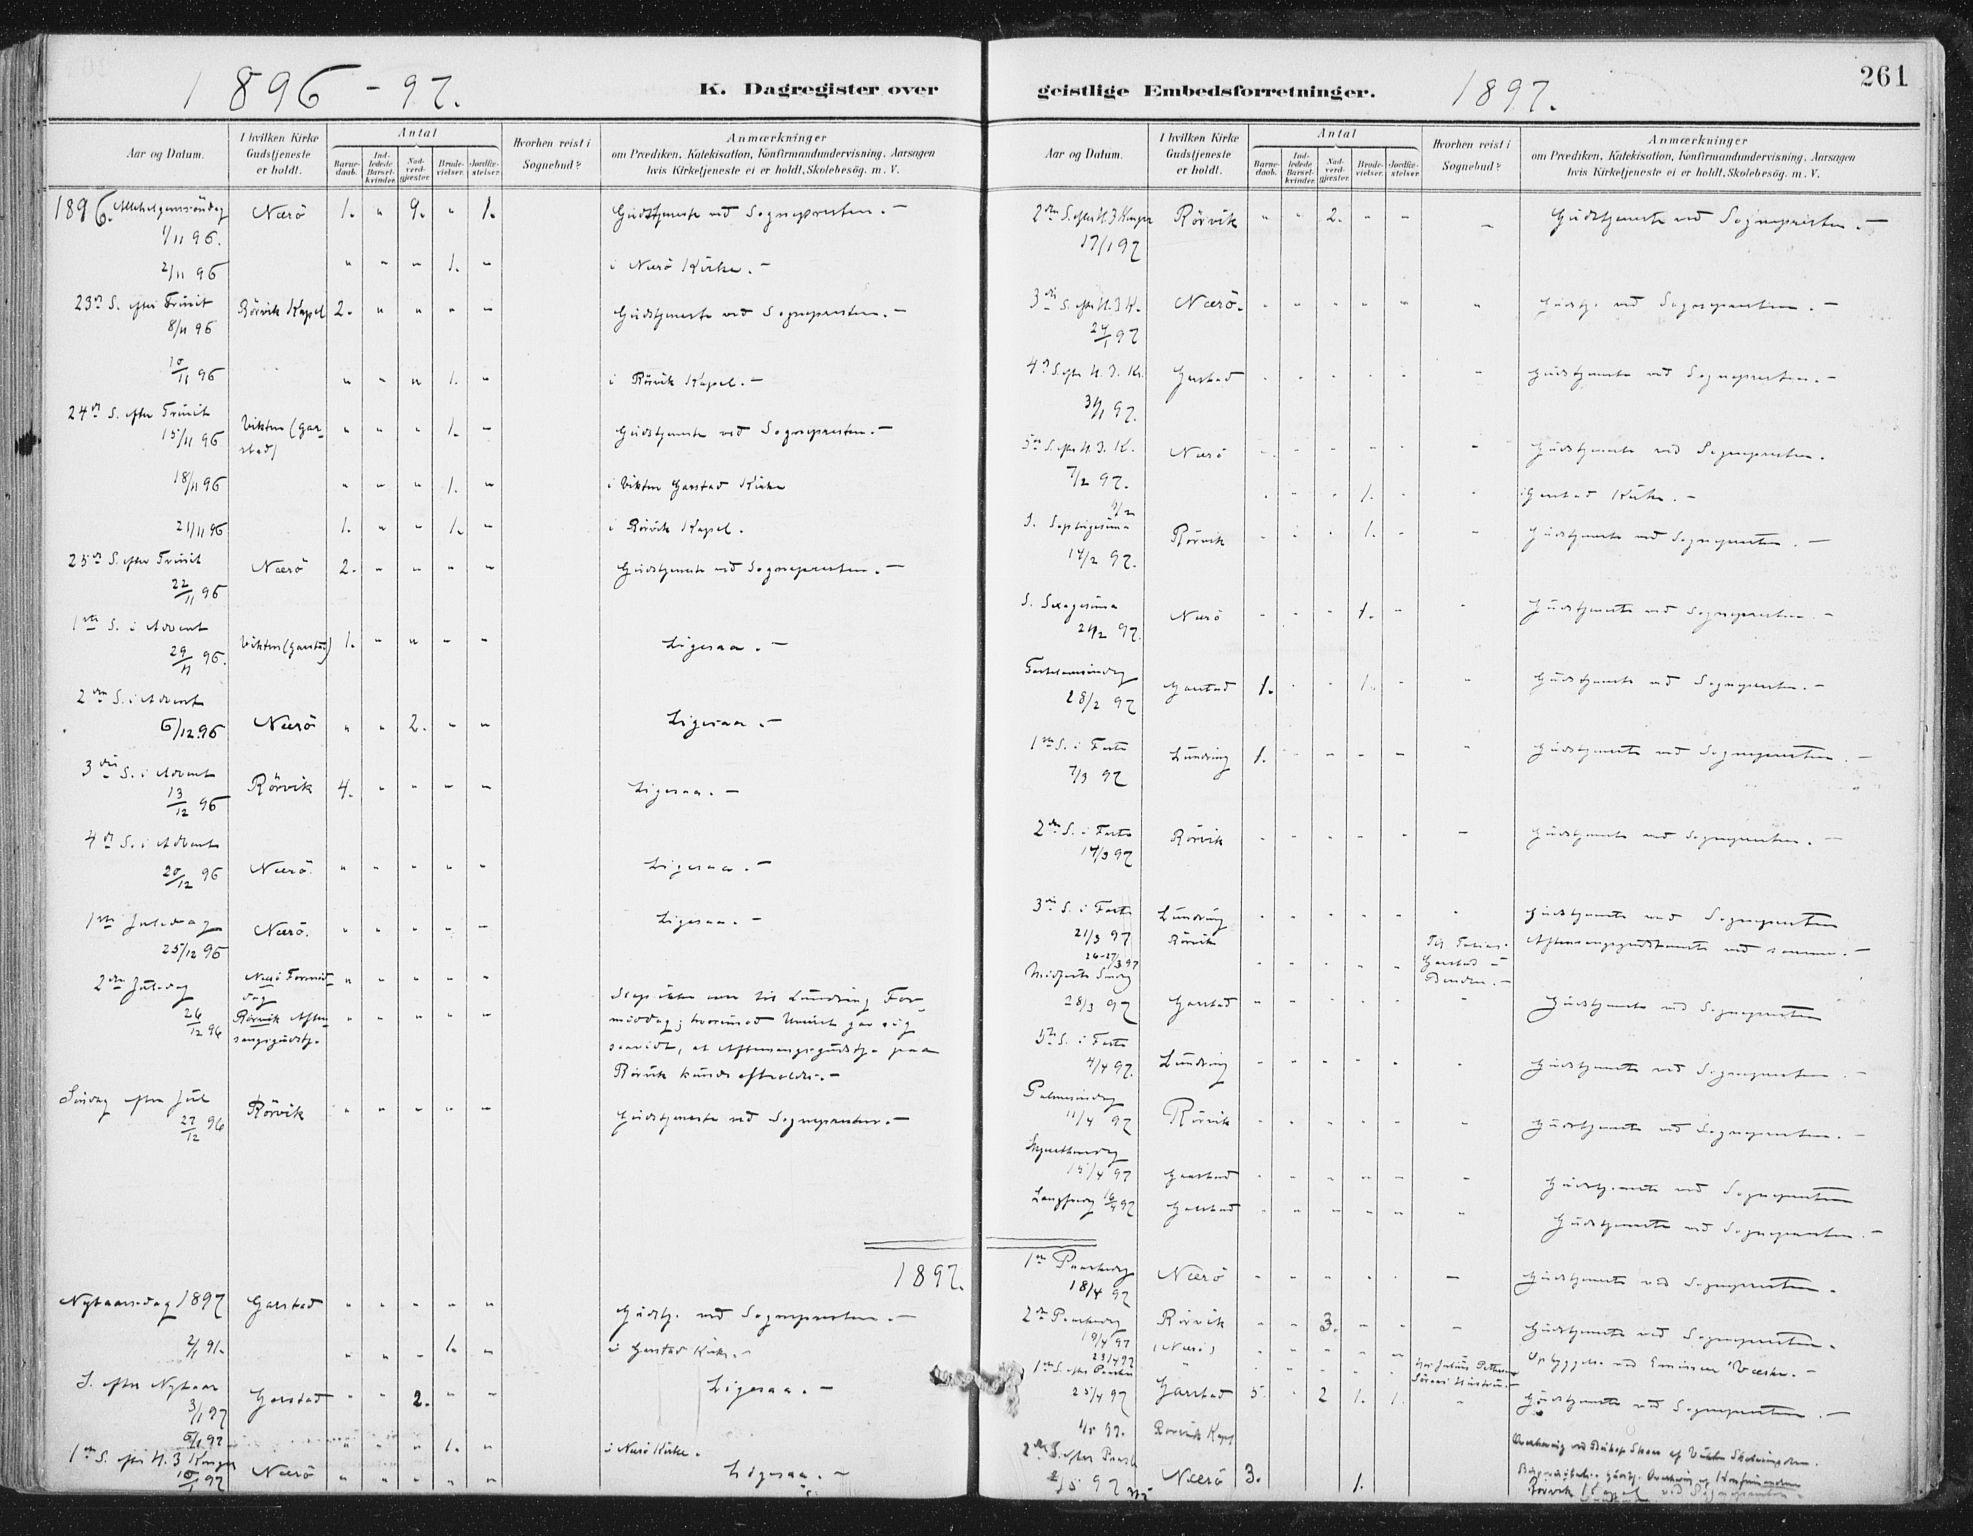 1896 - 97.
K. Dagregister over
Aar og Datum.
I hvilken Kirke Gudstjeneste er holdt.
Antal
Barnedaab.
Indledede Barselkvinder.
Nadverdgjester.
Brudevielser.
Jordfæstelser.
Hvorhen reist i Sognebud?
Anmærkninger
om Prædiken, Katekisation, Konfirmandundervisning, Aarsagen
hvis Kirketjeneste ei er holdt, Skolebesøg. m. V.
1896. Allehelgenssöndag Nærö 1. " 9. " 1. Gudstjeneste ved Sognepresten. -
1/11 96.
2/11 96 " " " 1. " i Nærö Kirke. -
23de S. efter Trinit Rörvik Kapel 2. " " " " Gudstjeneste ved Sognepresten. -
8/11 96
10/11 96 " " " 1. " i Rörvik Kapel. -
24de S. efter Trinit
15/11 96 Vikten (Gar- " " " 1. " Gudstjeneste ved Sognepresten. -
stad)
18/11 96 " " " 1. " i Vikten Garstad Kirke
21/11 96 1. " " 1. " i Rörvik Kapel.
25de S. efter Trinit Nærö 2. " " " " Gudstjeneste ved Sognepresten. -
22/11 96
1ste S. i Advent Vikten (Garstad) 1. " " " " Ligesaa. -
29/11 96.
2den S. i Advent
6/12.96 Nærö " " 2. " " Ligesaa. -
3die S. i Advent Rörvik 4. " " " " Ligesaa. -
13/12 96
4de S. i Advent
20/12 96 Nærö. " " " " " Ligesaa. -
1ste Juledag Nærö. " " " " " Ligesaa. -
25/12 96
2den Juledag Nærö Formid- " " " " "
dag
26/12 96 Rörvik Aften- " " " " " Slap ikke over til Lundring For-
sangsgudstj. middag; hvorimod Veiret gav sig
saavidt, at Aftensangsgudstj. paa
Rörvik kunde afholdes. -
Söndag efter Jul Rörvik " " " " " Gudstjeneste ved Sognepresten. -
27/12 96
1897.
Nytaarsdag 1897 Garstad " " " " " Gudstj. ved Sognepresten. -
2/1 91. " " " 1. " i Garstad Kirke. -
S. efter Nytaar Garstad " " 2. " " Ligesaa. -
3/1 97
6/1 97 " " " 1. " i Nærö Kirke.
1ste S. efter H. 3 Konger
10/1 97 Nærö " " " " " Ligesaa. -
geistlige Embedsforretninger.
1897.
261
Aar og Datum.
I hvilken Kirke Gudstjeneste er holdt.
Antal
Barnedaab.
Indledede Barselkvinder.
Nadverdgjester.
Brudevielser.
Jordfæstelser.
Hvorhen reist i Sognebud?
Anmærkninger
om Prædiken, Katekisation, Konfirmandundervisning, Aarsagen
hvis Kirketjeneste ei er holdt, Skolebesøg. m. V.
2den S. efter H 3 Konger Rörvik " " 2. " " " Gudstjeneste ved Sognepresten. -
17/1 97
3die S. efter H. 3 K. Nærö. " " " " " " Gudstj. ved Sognepresten. -
24/1 97
4de S. efter H. 3. K. Garstad " " " " " " Gudstjeneste ved Sognepresten. -
31/1 97.
5te S. efter H. 3. K. Nærö " " " " " " Gudstjeneste ved Sognepresten.
7/2 97.
" " " 1. " " i Garstad Kirke. -
S. Septuagesima Rörvik " " " 1. " " Gudstjeneste ved Sognepresten. -
14/2 97.
S. Sexagesima Nærö " " " 1. " " Gudstjeneste ved Sognepresten. -
21/2 97.
Fastelavnssöndag Garstad 1. " " 1. " " Gudstjeneste ved Sognepresten. -
28/2 97
1ste S. i Faste Lundring 1. " " " " " Gudstjeneste ved Sognepresten. -
7/3 97
2den S. i Faste Rörvik " " " " " - Gudstjeneste ved Sognepresten. -
14/3 97
3die S. i Faste Lundring " " " " " " Gudstjeneste ved Sognepresten
21/3 97 Rörvik Aftensangsgudstjeneste ved samme. -
26-27/3 97 Garstad
Midfaste Söndag
28/3 97 Garstad " " " " " " Gudstjeneste ved Sognepresten
5te S. i Faste
4/4 97. Lundring " " " " " " Gudstjeneste ved Sognepresten. -
Palmesöndag
11/4 97 Rörvik " " " " " " Gudstjeneste ved Sognepresten. -
Skjærthorsdag
15/4 97 Garstad " " " " " " Gudstjeneste ved Sognepresten
Langfredag 16/4 97 Garstad " " " " " " Gudstjeneste ved Sognepresten. -
1ste Paaskedag Nærö " " " " " - Gudstjeneste ved Sognepresten.
18/4 97
2den Paaskedag Rörvik " " 3. " " " Gudstjeneste ved Sognepresten.
19/4 97
23/4 97 (Nærö) " " " " " Opbyggelse ved Emissær
1ste S. efter Paaske
25/4 97 Garstad 5. " 2 1. 1. " Gudstjeneste ved Sognepresten. -
4/5 97. Rörvik Kapel
2den S. efter Paaske
2/5 97 Nærö 3. 1.
Rörvik Kapel ved Sognepresten